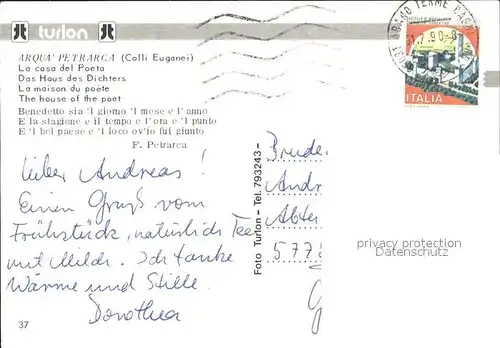 turlon
ARQUA' PETRARCA (Colli Euganei)
La casa del Poeta
Das Haus des Dichters
La maison du poète
The house of the poet
Benedetto sia 'l giorno 'l mese e l' anno
E la stagione e il tempo e l'ora e 'l punto
E 'l bel paese e 'l loco ov'io fui giunto
F. Petrarca
Lieber Andreas!
Einen Gruß vom
Frühstück, natürlich Tee
mit Milch. Ich tanke
Wärme und Stille.
Dorothea
37
Foto Turlon - Tel. 793243 -
ABANO TERME
7.90
ITALIA
Bruder
Andr
Abtei
577
privacy protection
Datenschutz